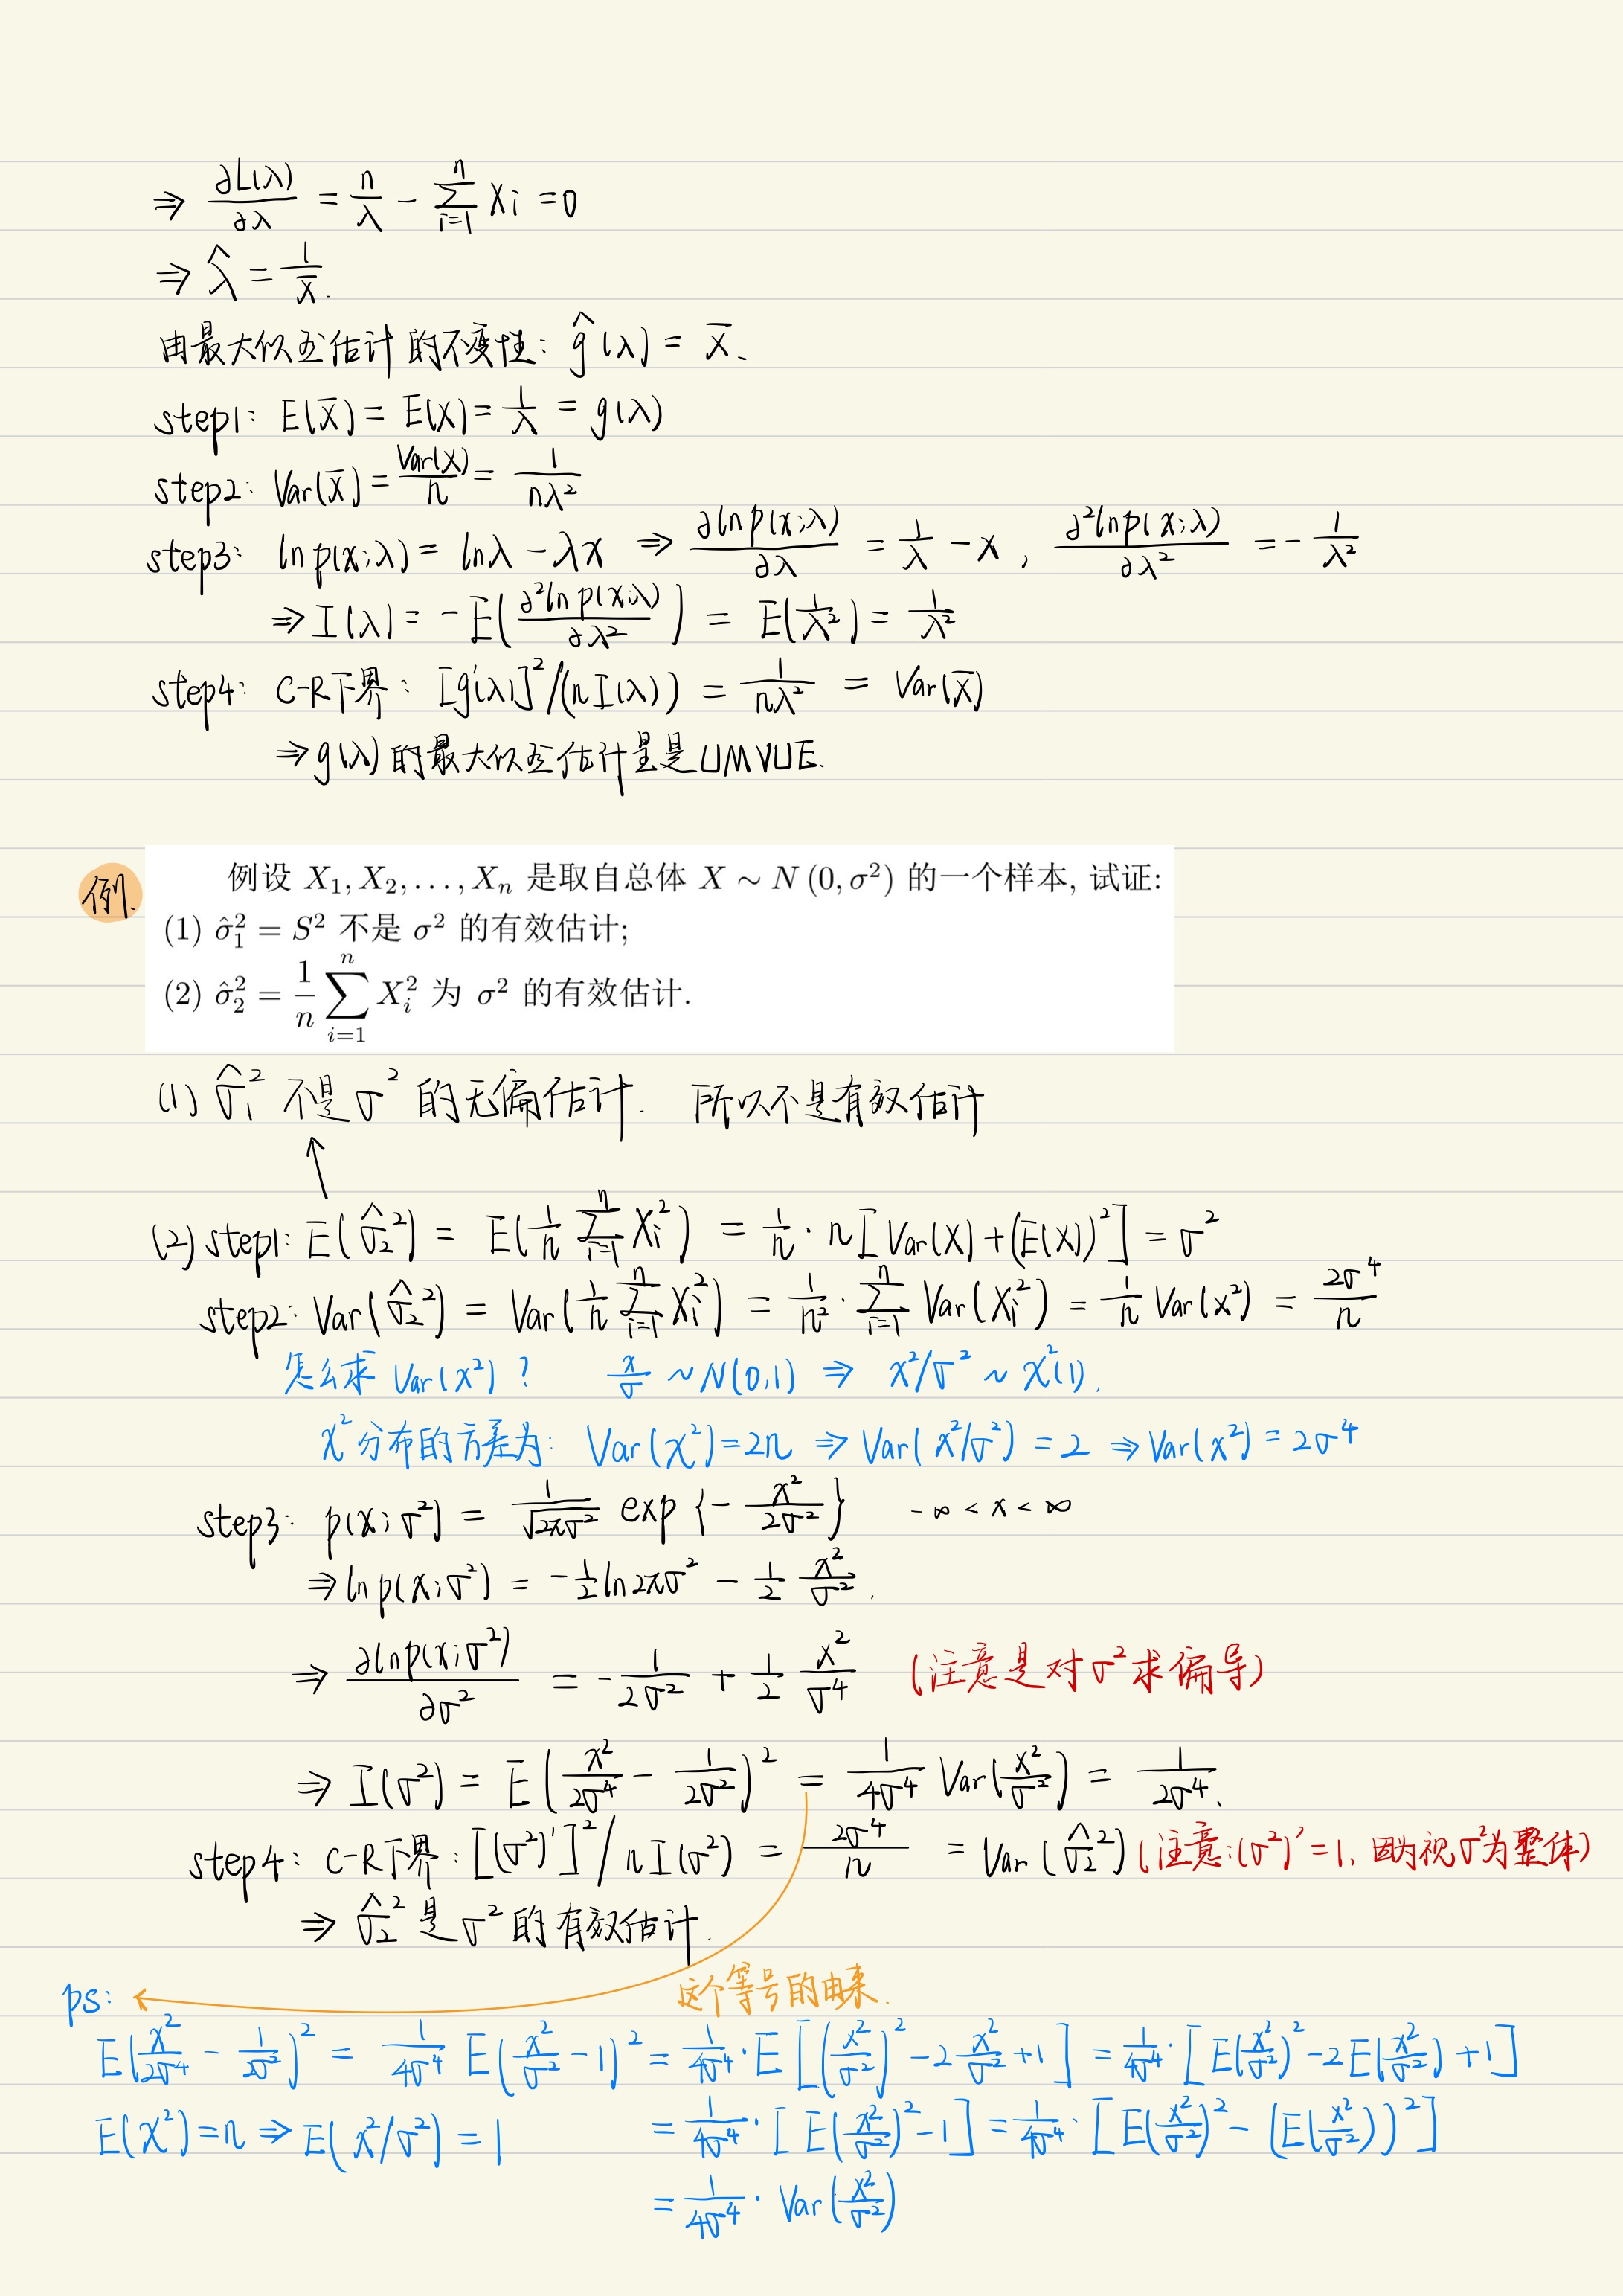 ⇒ ∂L(λ)/∂λ = n/λ - ∑_{i=1}^{n} Xi = 0
⇒ λ̂ = 1/x̄.
由最大似然估计的不变性: ĝ(λ) = X̄.
step1: E(X̄) = E(X) = 1/λ = g(λ)
step2: Var(X̄) = Var(X)/n = 1/(nλ²)
step3: ln p(x;λ) = lnλ - λx ⇒ ∂ln p(x;λ)/∂λ = 1/λ - x , ∂²ln p(x;λ)/∂λ² = - 1/λ²
⇒ I(λ) = -E(∂²ln p(x;λ)/∂λ²) = E(1/λ²) = 1/λ²
step4: C-R下界: [g'(λ)]²/(nI(λ)) = 1/(nλ²) = Var(X̄)
⇒ g(λ) 的最大似然估计量是UMVUE.
例. 例设 X₁, X₂, ..., Xₙ 是取自总体 X ~ N (0, σ²) 的一个样本, 试证:
(1) σ̂₁² = S² 不是 σ² 的有效估计;
(2) σ̂₂² = 1/n ∑_{i=1}^{n} Xᵢ² 为 σ² 的有效估计.
(1) σ̂₁² 不是 σ² 的无偏估计. 所以不是有效估计
↑
(2) step1: E(σ̂₂²) = E(1/n ∑_{i=1}^{n} Xi²) = 1/n · n[Var(X) + (E(X))²] = σ²
step2: Var(σ̂₂²) = Var(1/n ∑_{i=1}^{n} Xi²) = 1/n² · ∑_{i=1}^{n} Var(Xi²) = 1/n Var(x²) = 2σ⁴/n
怎么求 Var(x²) ? x/σ ~ N(0,1) ⇒ x²/σ² ~ χ²(1).
χ²分布的方差为: Var(χ²)=2n ⇒ Var(x²/σ²) = 2 ⇒ Var(x²) = 2σ⁴
step3: p(x;σ²) = 1/√(2πσ²) exp {- x²/2σ²} -∞ < x < ∞
⇒ ln p(x;σ²) = -1/2 ln2πσ² - 1/2 x²/σ².
⇒ ∂ln p(x;σ²)/∂σ² = - 1/2σ² + 1/2 x²/σ⁴ (注意是对σ²求偏导)
⇒ I(σ²) = E(x²/2σ⁴ - 1/2σ²)² = 1/4σ⁴ Var(x²/σ²) = 1/2σ⁴.
step4: C-R下界: [(σ²)']²/nI(σ²) = 2σ⁴/n = Var(σ̂₂²) (注意:(σ²)'=1, 因为视σ²为整体)
⇒ σ̂₂² 是 σ² 的有效估计.
ps: 这个等号的由来.
E(x²/2σ⁴ - 1/2σ²)² = 1/4σ⁴ E(x²/σ² - 1)² = 1/4σ⁴ · E[(x²/σ²)² - 2 x²/σ² + 1] = 1/4σ⁴ · [E(x²/σ²)² - 2E(x²/σ²) + 1]
E(χ²)=n ⇒ E(x²/σ²) = 1 = 1/4σ⁴ · [E(x²/σ²)² - 1] = 1/4σ⁴ · [E(x²/σ²)² - (E(x²/σ²))²]
= 1/4σ⁴ · Var(x²/σ²)